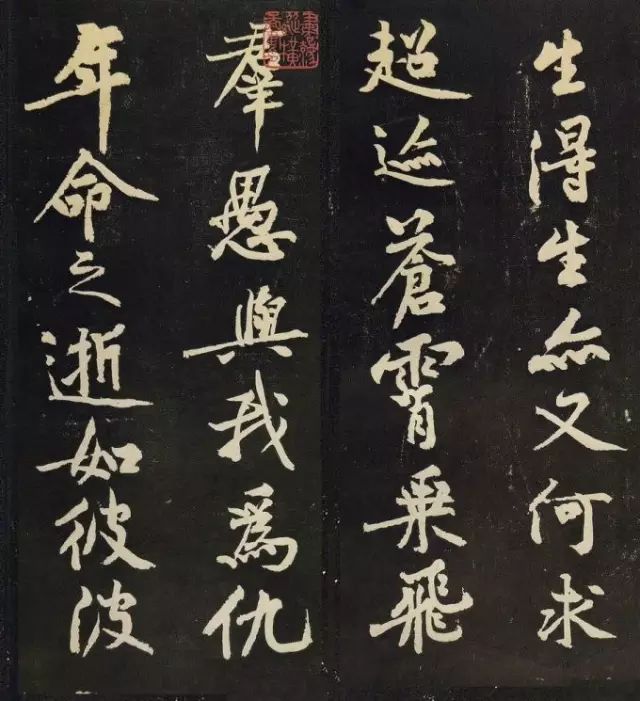 生得生亦又何求
超迹蒼霄乘飛
羣愚與我為仇
年命之逝如彼波